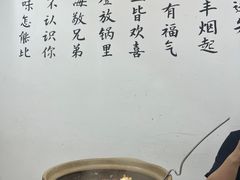 丰烟起
有福气
皆欢喜
放锅里
敬兄弟
不认识你
味怎能比